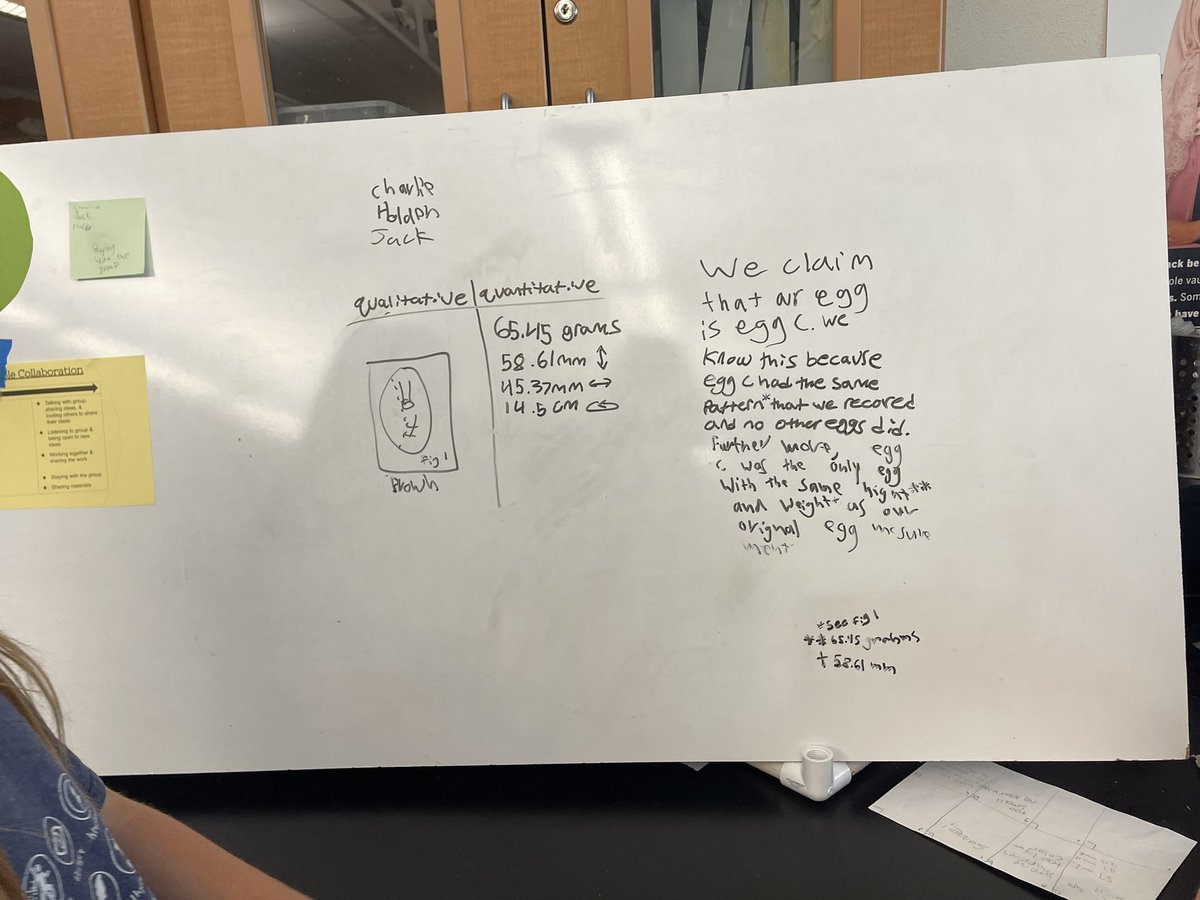 Charlie
Holden
Jack
Jack
Staying
with the
group
qualitative | quantitative
65.45 grams
58.61mm ↕
45.37mm ↔
14.5 cm
fig 1
Brown
We claim
that ar egg
is egg C. we
Know this because
egg C had the same
pattern* that we recored
and no other eggs did.
Further more, egg
C was the only egg
with the same hight**
and weight as our
orignal egg mesure
ment
*see fig 1
** 65.45 grahams
† 58.61 mm
le Collaboration
Talking with group,
sharing ideas, &
inviting others to share
their ideas
Listening to group &
being open to new
ideas
Working together &
sharing the work
Staying with the group
Sharing materials
ck be
ole vau
s. Som
have